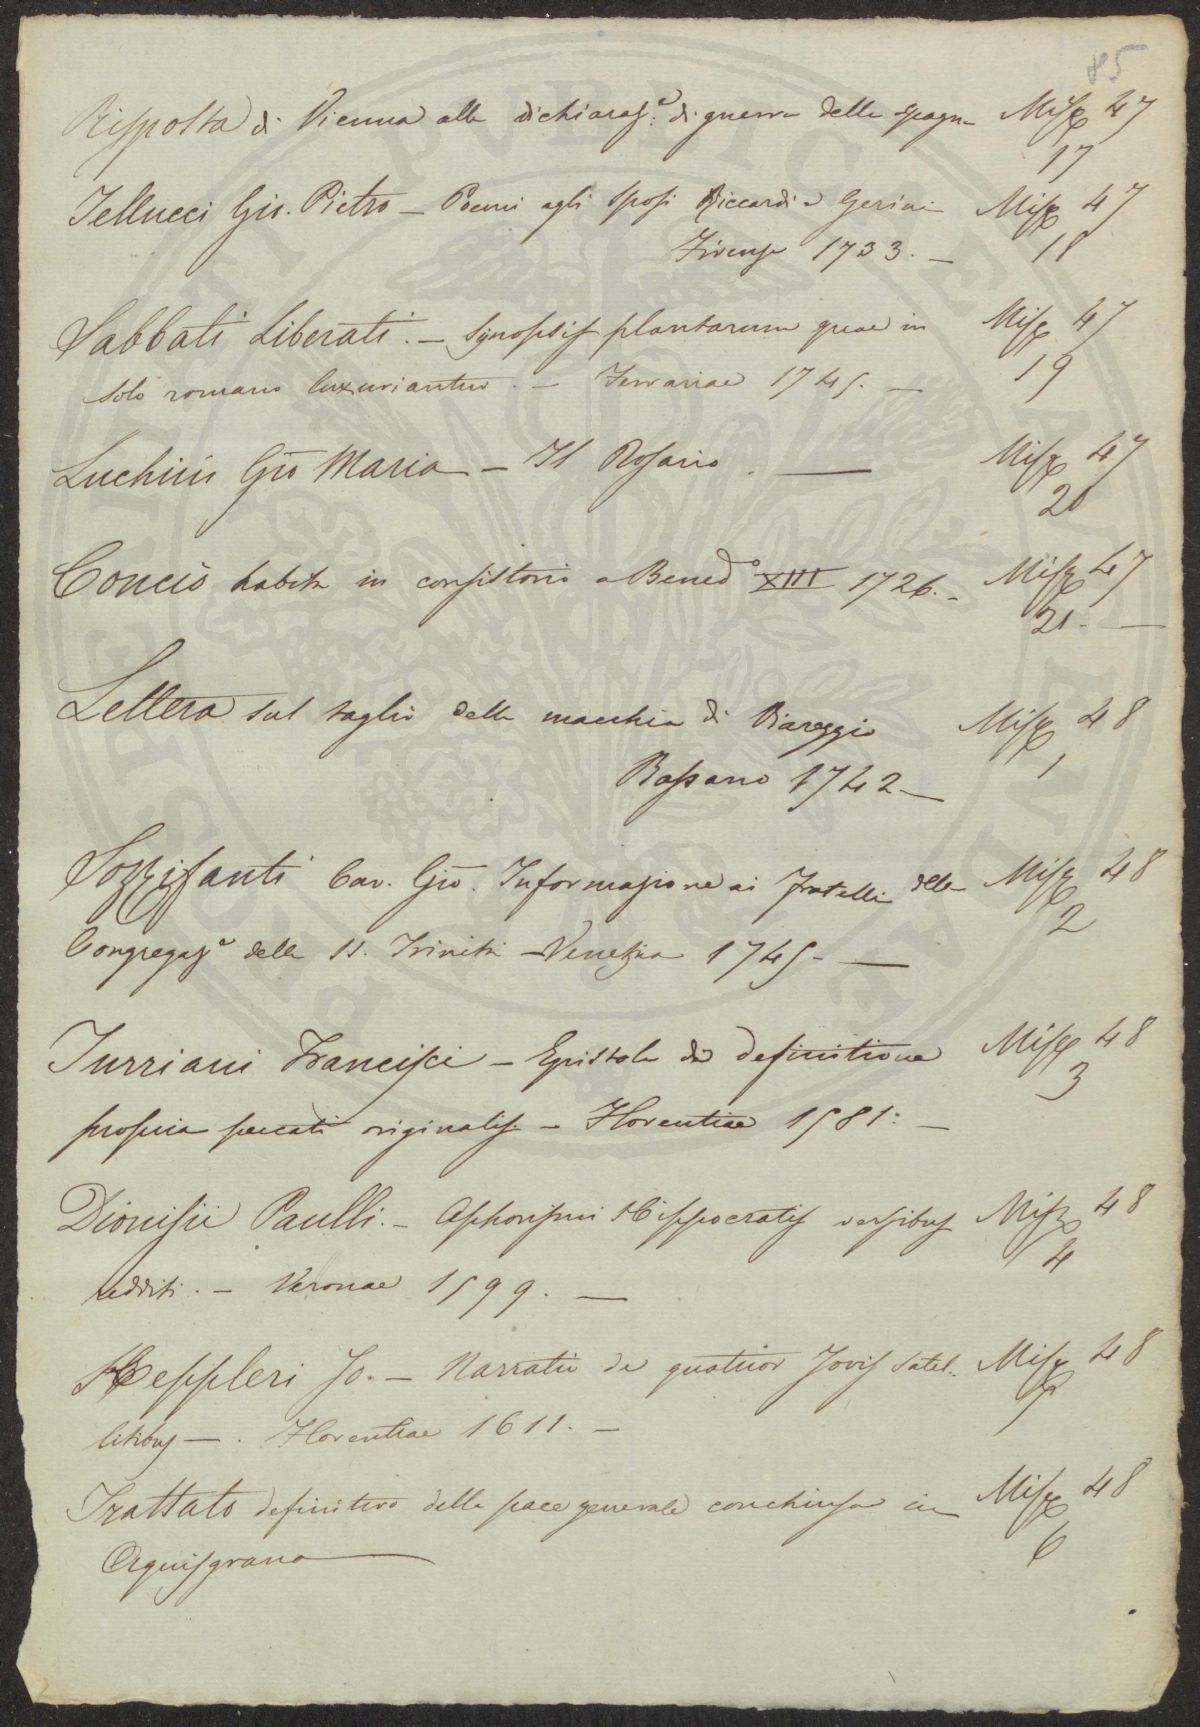 85
Risposta di Vienna alla dichiaraz.e di guerra della Spagna Misc 47
17
Tellucci Gio. Pietro – Poemi agli Sposi Riccardi e Gerini Misc 47
Firenze 1733. – 18
Sabbati Liberati. – Synopsis plantarum quae in Misc 47
solo romano luxuriantur. – Ferrariae 1745. – 19
Luchini Gio Maria – Il Rosario. — Misc 47
20
Concio habita in consistorio a Bened.o XIII 1726. – Misc 47
21. —
Lettera sul taglio della macchia di Viareggio Misc 48
Bassano 1742 – 1
Sozzifanti Cav. Gio. Informazione ai fratelli della Misc 48
2
Congregaz.e della SS. Trinità – Venezia 1745 – —
Turriani Francisci – Epistola de definitione Misc 48
3
propria peccati originalis – Florentiae 1581. –
Dionisii Paulli. – Aphorismi Hippocratis versibus Misc 48
4
redditi. – Veronae 1599. —
Keppleri Jo. – Narratio de quatuor Jovis satel- Misc 48
5
litibus – . Florentiae 1611. –
Trattato definitivo della pace generale conchiusa in Misc 48
6
Aquisgrana —